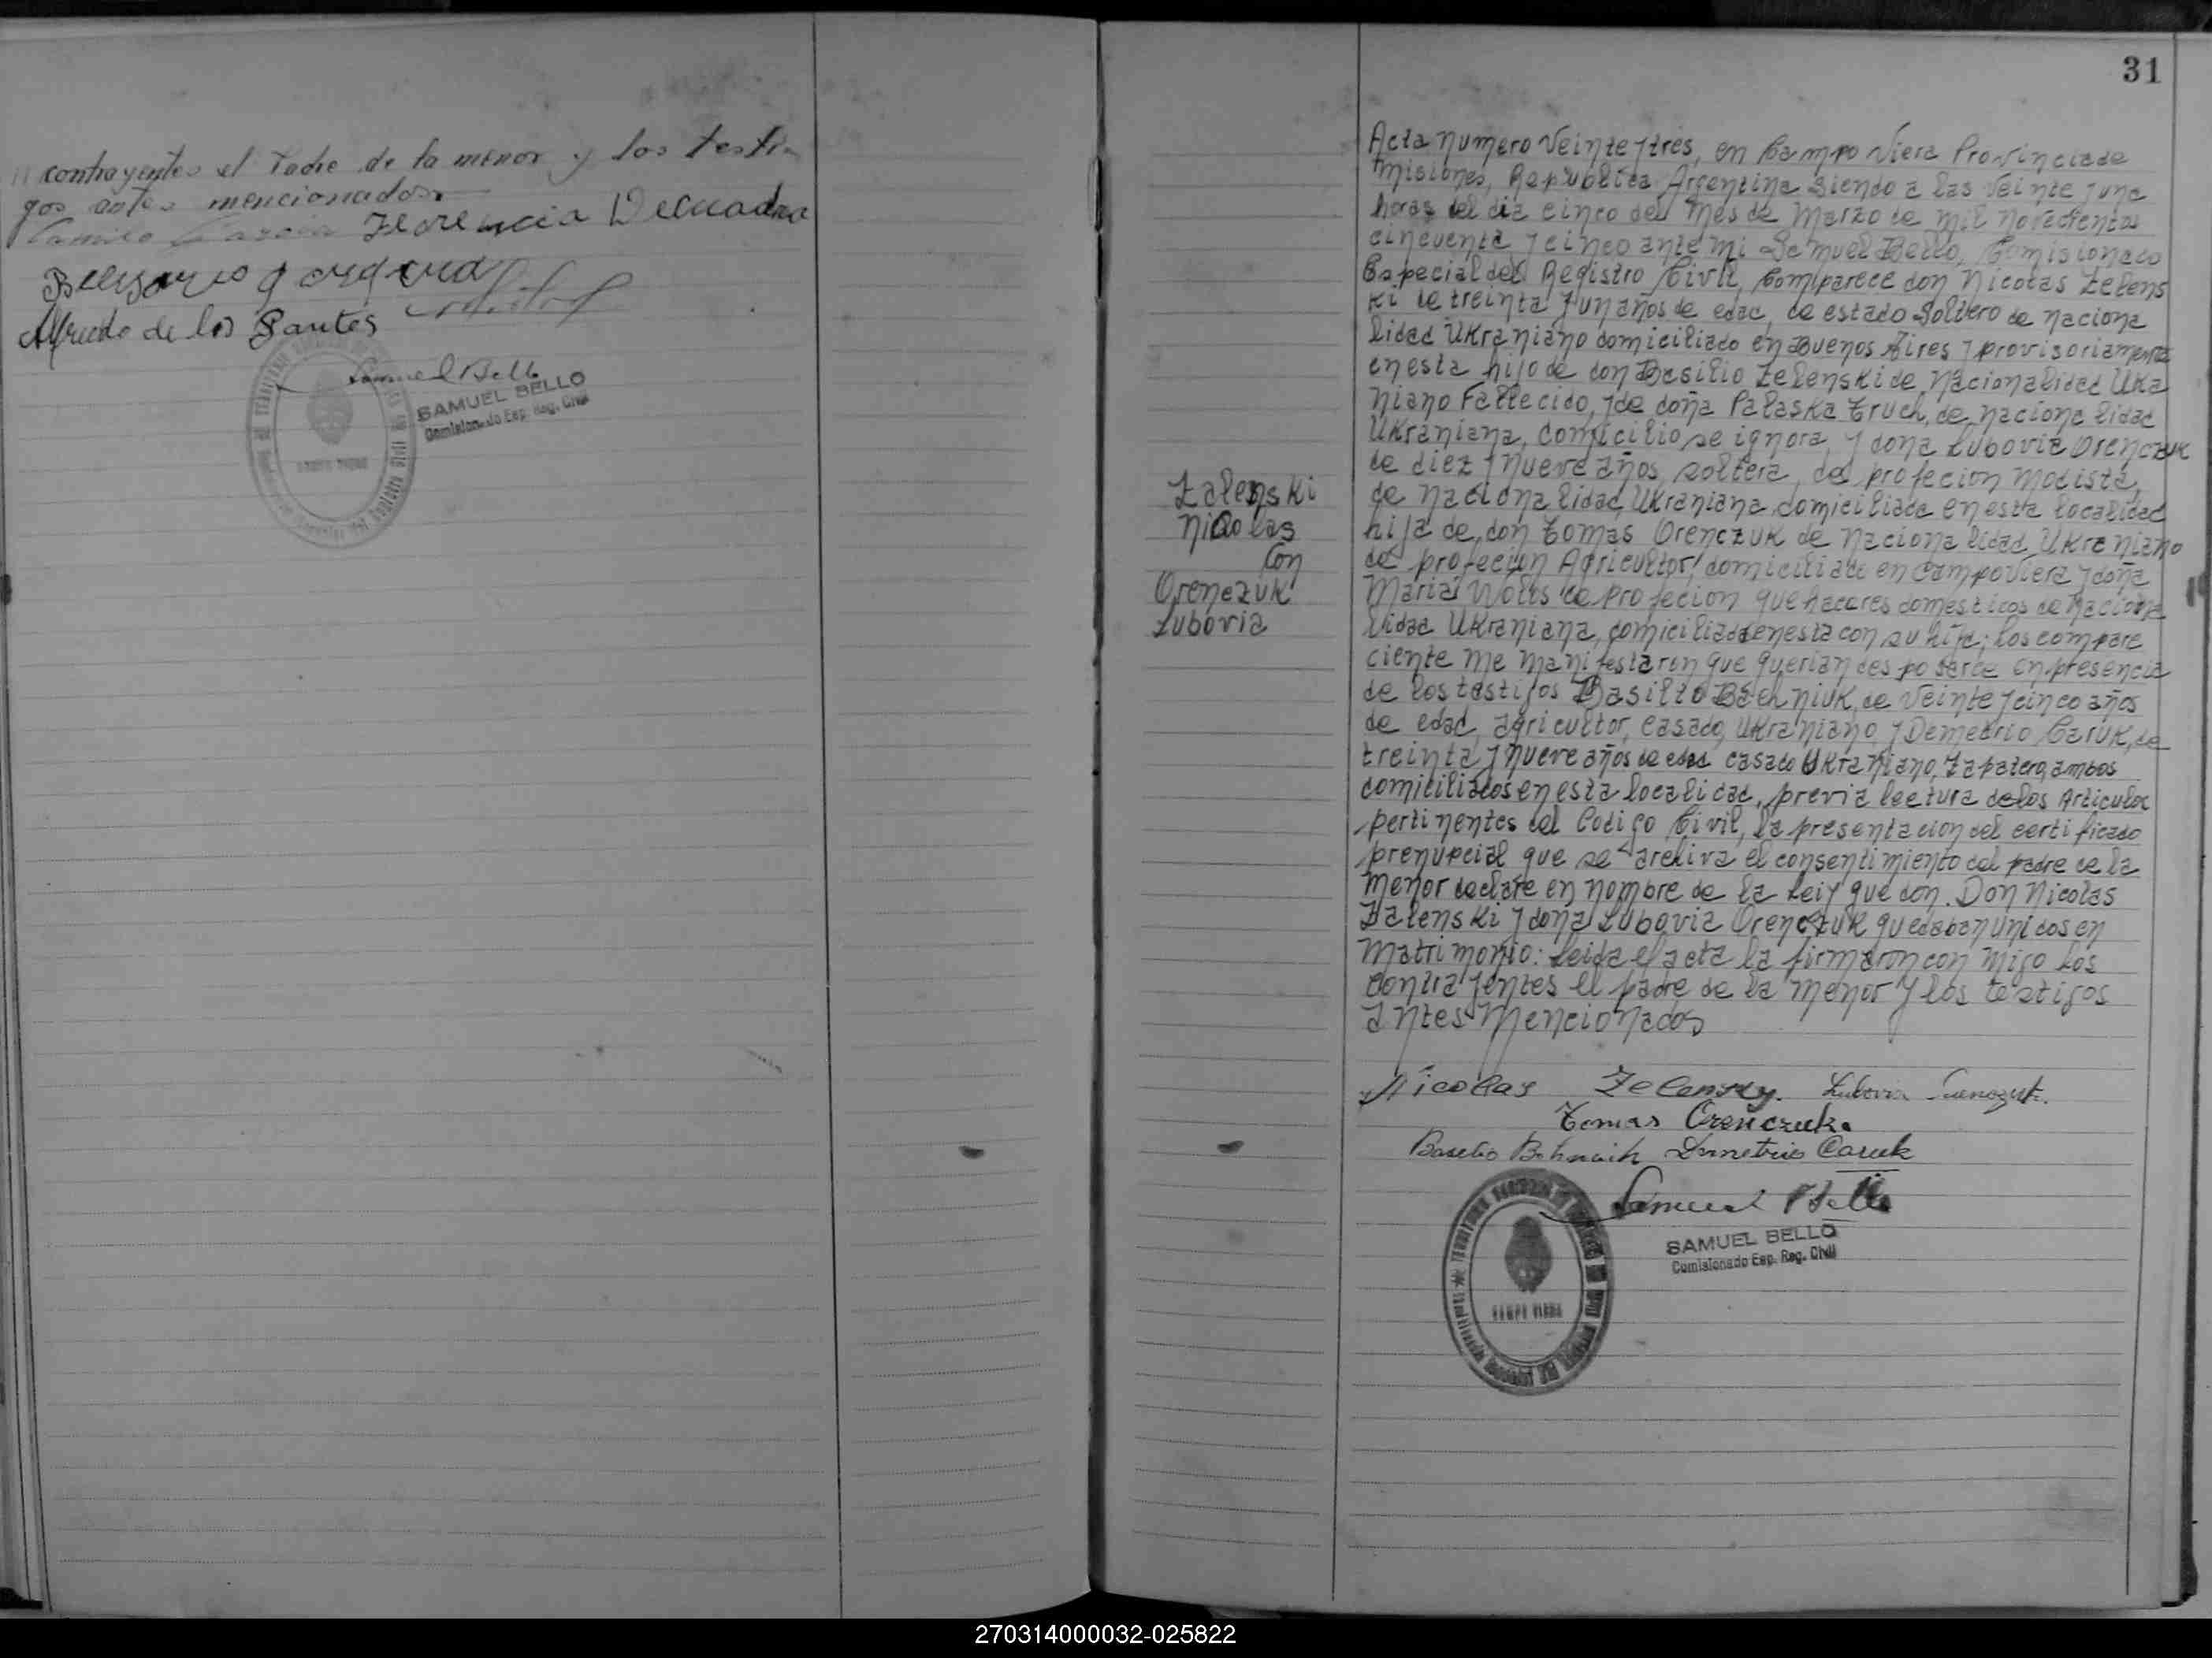 contrayentes el Padre de la menor y los testi-
gos antes mencionados.
Camilo Garcia Florencia Decuadra
Alfredo de los Santos
Samuel Bello
SAMUEL BELLO
Comisionado Esp. Reg. Civil
31
Zalenski
Nicolas
Con
Orenczuk
Lubovia
Acta numero Veinte y tres, en Campo Viera Provincia de
Misiones, Republica Argentina siendo a las Veinte y una
horas del dia cinco del mes de Marzo de mil novecientos
cincuenta y cinco ante mi Samuel Bello, Comisionado
Especial del Registro Civil, Comparece don Nicolas Zelens
ki de treinta y un años de edad, de estado Soltero de naciona
lidad Ukraniano domiciliado en Buenos Aires y provisoriamente
en esta hijo de don Basilio Zelenski de Nacionalidad Ukra
niano Fallecido, y de doña Palaska Truch, de nacionalidad
Ukraniana, domicilio se ignora, y doña Lubovia Orenczuk
de diez y nueve años, soltera, de profecion Modista,
de nacionalidad Ukraniana domiciliada en esta localidad
hija de don Tomas Orenczuk de Nacionalidad Ukraniano
de profecion Agricultor, domiciliado en Campoviera y doña
Maria de profecion que haceres domesticos de Naciona
lidad Ukraniana, domiciliada en esta con su hija; los compare
ciente me manifestaron que querian desposarce en presencia
de los testigos Basilio de Veinte y cinco años
de edad, agricultor, casado, Ukraniano y Demetrio Caruk, de
treinta y nueve años de edad casado Ukraniano, Zapatero, ambos
domiciliados en esta localidad, previa lectura de los Articulos
pertinentes del Codigo Civil, la presentacion del certificado
prenupcial que se archiva el consentimiento del padre de la
menor declare en nombre de la Leiy que don. Don Nicolas
Zalenski y doña Lubovia Orenczuk quedaban unidos en
matrimonio: Leida el acta la firmaron con migo los
contrayentes el padre de la menor y los testigos
antes mencionados
Nicolas Zelensky. Lubovia
Tomas Orenczuk.
Basilio Demetrio Caruk
Samuel Bello
SAMUEL BELLO
Comisionado Esp. Reg. Civil
CAMPO VIERA
270314000032-025822